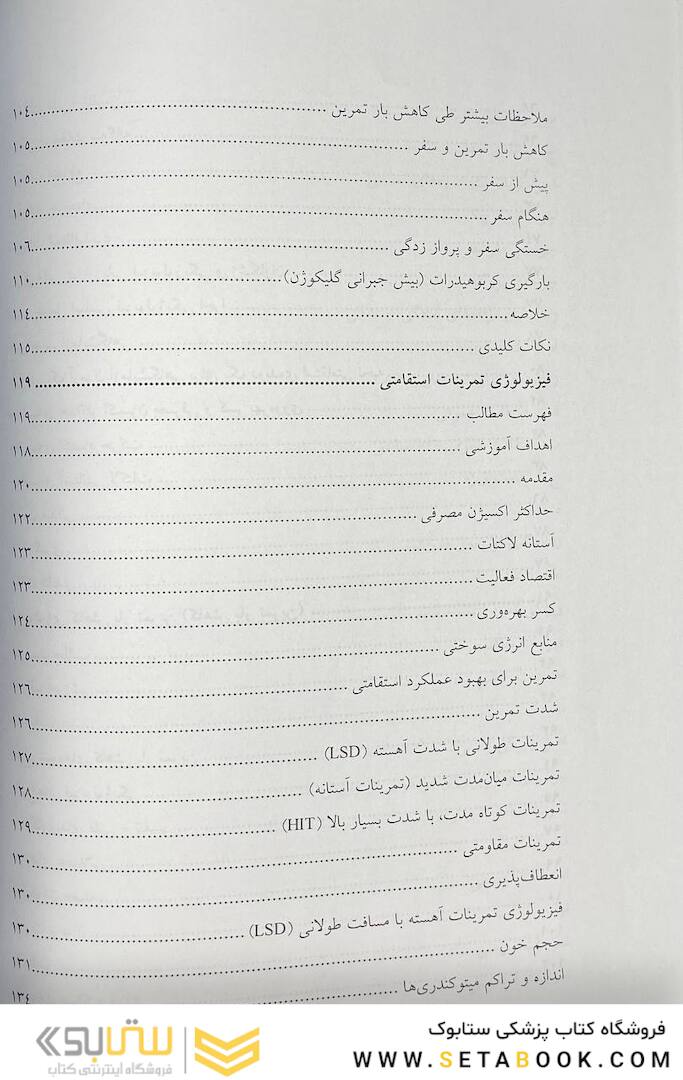 ملاحظات بیشتر طی کاهش بار تمرین ........ ۱۰٤
کاهش بار تمرین و سفر ........ ۱۰۵
پیش از سفر ........ ۱۰۵
هنگام سفر ........ ۱۰۵
خستگی سفر و پرواز زدگی ........ ۱۰٦
بارگیری کربوهیدرات (بیش جبرانی گلیکوژن) ........ ۱۱۰
خلاصه ........ ۱۱٤
نکات کلیدی ........ ۱۱۵
فیزیولوژی تمرینات استقامتی ........ ۱۱۹
فهرست مطالب ........ ۱۱۹
اهداف آموزشی ........ ۱۱۸
مقدمه ........ ۱۲۰
حداکثر اکسیژن مصرفی ........ ۱۲۲
آستانه لاکتات ........ ۱۲۳
اقتصاد فعالیت ........ ۱۲۳
کسر بهره‌وری ........ ۱۲٤
منابع انرژی سوختی ........ ۱۲۵
تمرین برای بهبود عملکرد استقامتی ........ ۱۲٦
شدت تمرین ........ ۱۲٦
تمرینات طولانی با شدت آهسته (LSD) ........ ۱۲۷
تمرینات میان‌مدت شدید (تمرینات آستانه) ........ ۱۲۸
تمرینات کوتاه مدت، با شدت بسیار بالا (HIT) ........ ۱۲۹
تمرینات مقاومتی ........ ۱۳۰
انعطاف‌پذیری ........ ۱۳۰
فیزیولوژی تمرینات آهسته با مسافت طولانی (LSD) ........ ۱۳۰
حجم خون ........ ۱۳۱
اندازه و تراکم میتوکندری‌ها ........ ۱۳٤
فروشگاه کتاب پزشکی ستابوک
WWW.SETABOOK.COM
ستابوک
فروشگاه اینترنتی کتاب